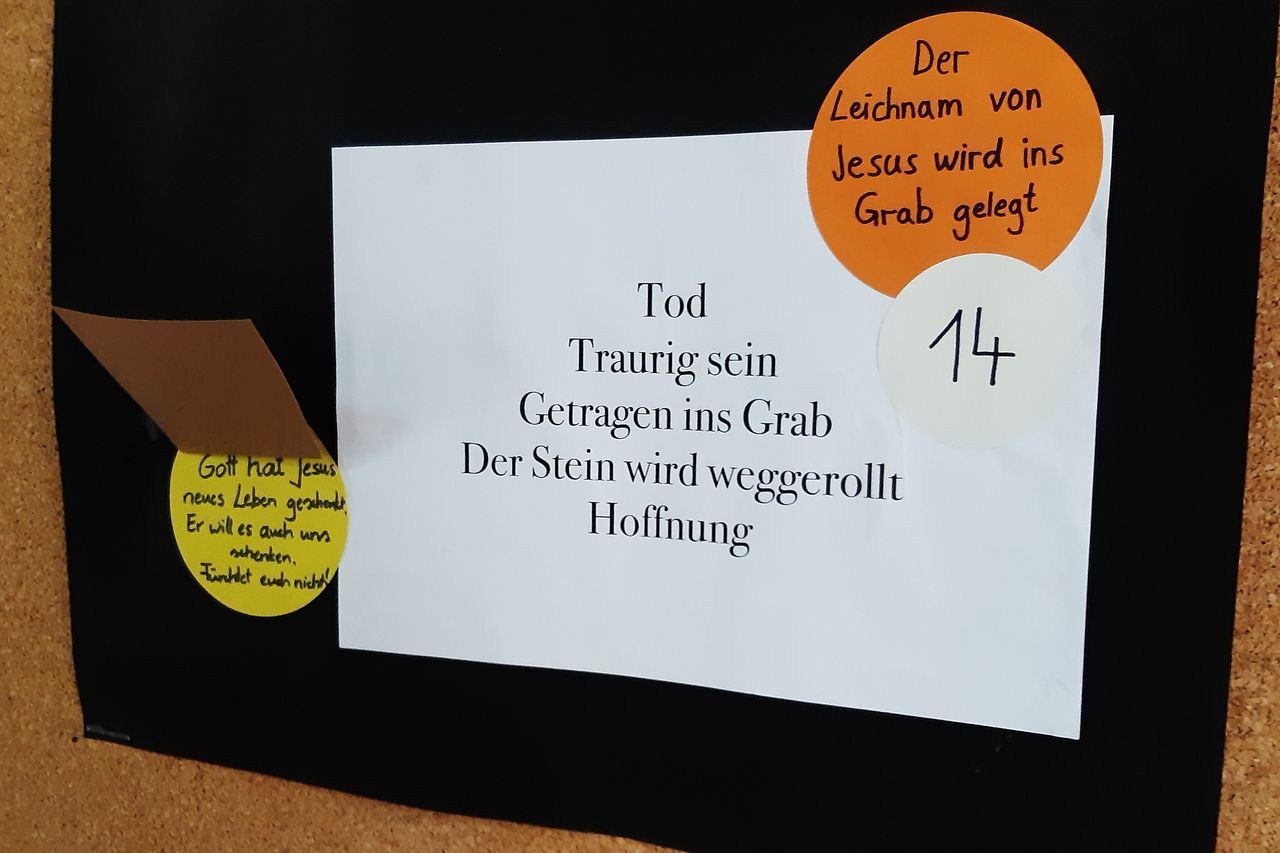 Der
Leichnam von
Jesus wird ins
Grab gelegt
14
Tod
Traurig sein
Getragen ins Grab
Der Stein wird weggerollt
Hoffnung
Gott hat Jesus
neues Leben geschenkt.
Er will es auch uns
schenken.
Fürchtet euch nicht!